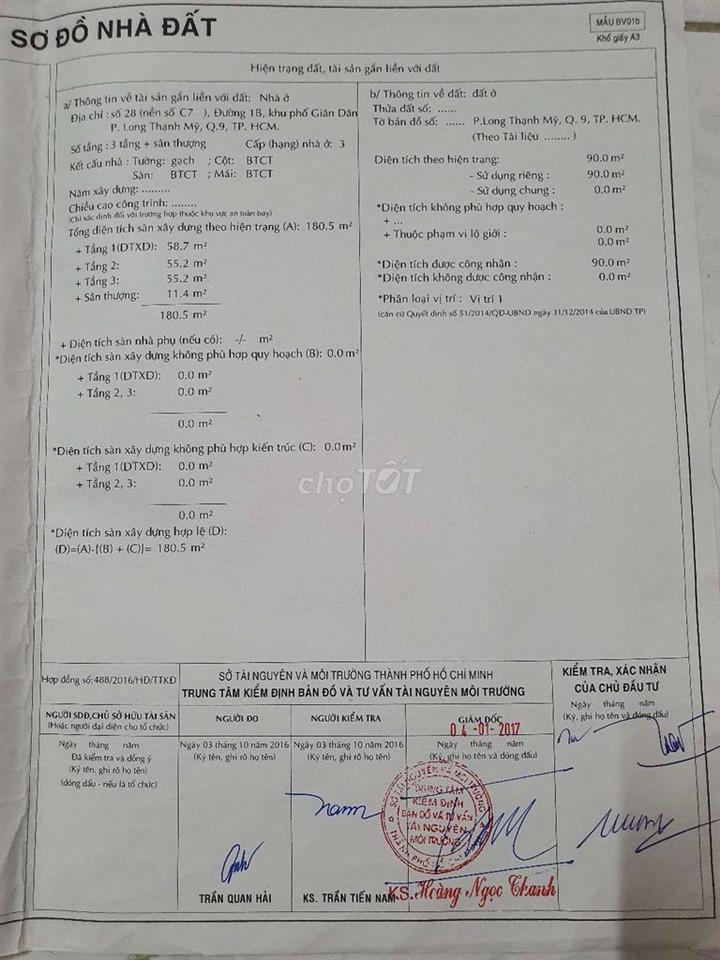 SƠ ĐỒ NHÀ ĐẤT
MẪU BV01b
Khổ giấy A3
Hiện trạng đất, tài sản gắn liền với đất
a/ Thông tin về tài sản gắn liền với đất: Nhà ở
Địa chỉ : số 28 (nền số C7 ), Đường 1B, khu phố Giãn Dân
P. Long Thạnh Mỹ, Q.9, TP. HCM.
Số tầng : 3 tầng + sân thượng Cấp (hạng) nhà ở : 3
Kết cấu nhà : Tường: gạch ; Cột: BTCT
Sàn: BTCT ; Mái: BTCT
Năm xây dựng: .........
Chiều cao công trình: ........
(Chỉ xác định đối với trường hợp thuộc khu vực an toàn bay)
Tổng diện tích sàn xây dựng theo hiện trạng (A): 180.5 m²
+ Tầng 1(DTXD): 58.7 m²
+ Tầng 2: 55.2 m²
+ Tầng 3: 55.2 m²
+ Sân thượng: 11.4 m²
180.5 m²
+ Diện tích sàn nhà phụ (nếu có): -/- m²
*Diện tích sàn xây dựng không phù hợp quy hoạch (B): 0.0 m²
+ Tầng 1(DTXD): 0.0 m²
+ Tầng 2, 3: 0.0 m²
0.0 m²
*Diện tích sàn xây dựng không phù hợp kiến trúc (C): 0.0 m²
+ Tầng 1(DTXD): 0.0 m²
+ Tầng 2, 3: 0.0 m²
0.0 m²
*Diện tích sàn xây dựng hợp lệ (D):
(D)=(A)-[(B) + (C)]= 180.5 m²
b/ Thông tin về đất: đất ở
Thửa đất số: ......
Tờ bản đồ số: ...... P.Long Thạnh Mỹ, Q. 9, TP. HCM.
(Theo Tài liệu ........)
Diện tích theo hiện trạng: 90.0 m²
- Sử dụng riêng : 90.0 m²
- Sử dụng chung : 0.0 m²
*Diện tích không phù hợp quy hoạch :
+ ...
+ Thuộc phạm vi lộ giới : 0.0 m²
0.0 m²
*Diện tích được công nhận : 90.0 m²
*Diện tích không được công nhận : 0.0 m²
*Phân loại vị trí : Vị trí 1
(căn cứ Quyết định số 51/2014/QĐ-UBND ngày 31/12/2014 của UBND TP)
chợTỐT
Hợp đồng số: 488/2016/HĐ/TTKĐ
SỞ TÀI NGUYÊN VÀ MÔI TRƯỜNG THÀNH PHỐ HỒ CHÍ MINH
TRUNG TÂM KIỂM ĐỊNH BẢN ĐỒ VÀ TƯ VẤN TÀI NGUYÊN MÔI TRƯỜNG
KIỂM TRA, XÁC NHẬN
CỦA CHỦ ĐẦU TƯ
NGƯỜI SDĐ,CHỦ SỞ HỮU TÀI SẢN
(Hoặc người đại diện cho tổ chức)
NGƯỜI ĐO
NGƯỜI KIỂM TRA
GIÁM ĐỐC
04 -01- 2017
Ngày tháng năm
(Ký, ghi họ tên và đóng dấu)
Ngày tháng năm
Đã kiểm tra và đồng ý
(Ký tên, ghi rõ họ tên)
(đóng dấu - nếu là tổ chức)
Ngày 03 tháng 10 năm 2016
(Ký tên, ghi rõ họ tên)
Ngày 03 tháng 10 năm 2016
(Ký tên, ghi rõ họ tên)
Ngày tháng năm
(Ký, ghi họ tên và đóng dấu)
SỞ TÀI NGUYÊN VÀ MÔI TRƯỜNG
TRUNG TÂM
KIỂM ĐỊNH
BẢN ĐỒ VÀ TƯ VẤN
TÀI NGUYÊN
MÔI TRƯỜNG
TRẦN QUAN HẢI
KS. TRẦN TIẾN NAM
KS. Hoàng Ngọc Thanh